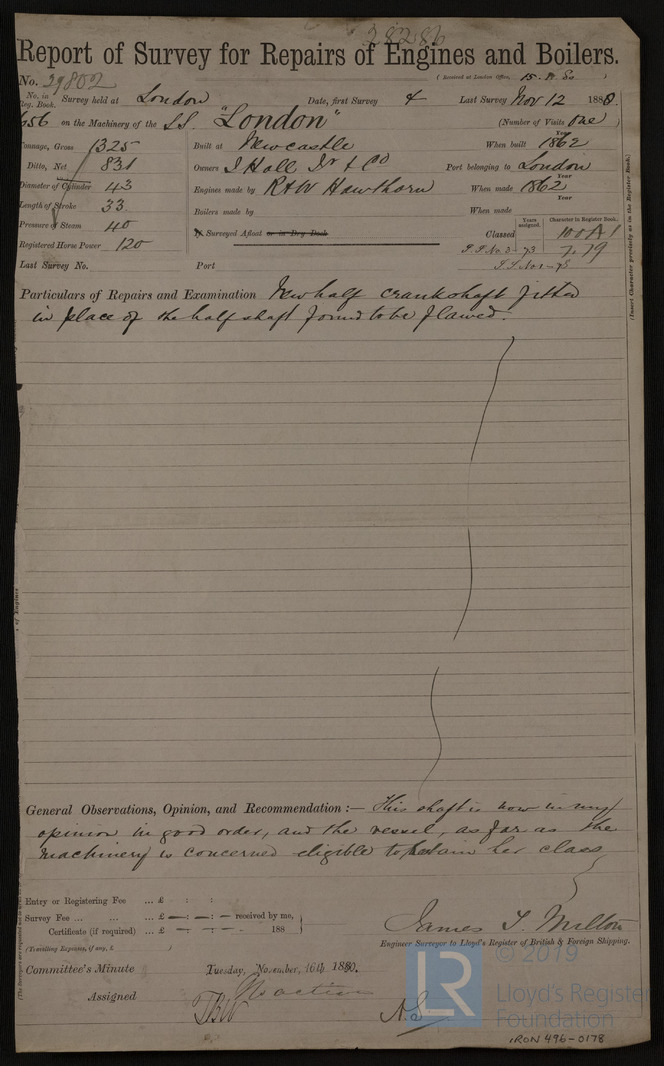 28286
Report of Survey for Repairs of Engines and Boilers.
No. 29802 (Received at London Office, 15. 11. 80 )
No. in Reg. Book. Survey held at London Date, first Survey & Last Survey Nov 12 1880.
656 on the Machinery of the S.S. "London" (Number of Visits one )
Tonnage, Gross 1325 Built at Newcastle When built 1862
Ditto, Net 831 Owners J Hall Jr & Co Port belonging to London
Diameter of Cylinder 43 Engines made by R & W Hawthorn When made 1862
Length of Stroke 33 Boilers made by When made
Pressure of Steam 40 Surveyed Afloat or in Dry Dock Classed Years assigned. Character in Register Book. 100 A1
Registered Horse Power 120 S.S. No 3-73 7.79
Last Survey No. Port S.S. No 1-78
(Insert Character precisely as in the Register Book.)
Particulars of Repairs and Examination New half crankshaft fitted
in place of the half shaft found to be flawed.
General Observations, Opinion, and Recommendation :— This shaft is now in my
opinion in good order, and the vessel, as far as the
machinery is concerned eligible to retain her class
Entry or Registering Fee ... £ : :
Survey Fee ... ... ... £ — : — : — received by me,
Certificate (if required) ... £ — : — : — 188
(Travelling Expenses, if any, £ )
James T. Milton
Engineer Surveyor to Lloyd's Register of British & Foreign Shipping.
Committee's Minute Tuesday, November, 16th 1880.
Assigned No action
TBW A.S
LR
© 2019
Lloyd's Register
Foundation
IRON 496-0178